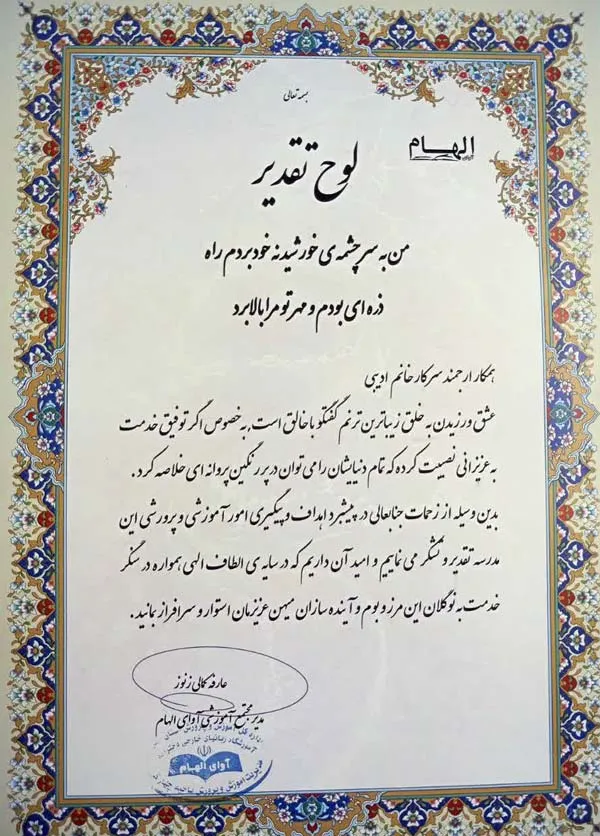 بسمه تعالی
الهام
لوح تقدیر
من به سرچشمه ی خورشید نه خود بردم راه
ذره ای بودم و مهر تو مرا بالا برد
همکار ارجمند سرکار خانم ادیبی
عشق ورزیدن به خلق زیباترین ترنم گفتگو با خالق است، به خصوص اگر توفیق خدمت
به عزیزانی نصیبت کرده که تمام دنیایشان را می توان در پر رنگین پروانه ای خلاصه کرد.
بدین وسیله از زحمات جنابعالی در پیشبرد اهداف و پیگیری امور آموزشی و پرورشی این
مدرسه تقدیر و تشکر می نماییم و امید آن داریم که در سایه ی الطاف الهی همواره در سنگر
خدمت به نوگلان این مرز و بوم و آینده سازان میهن عزیزمان استوار و سرافراز بمانید.
عارفه کمالی زنوز
مدیر مجتمع آموزشی آوای الهام
آموزشگاه زبانهای خارجی دخترانه
آوای الهام
مدیریت آموزش و پرورش ناحیه